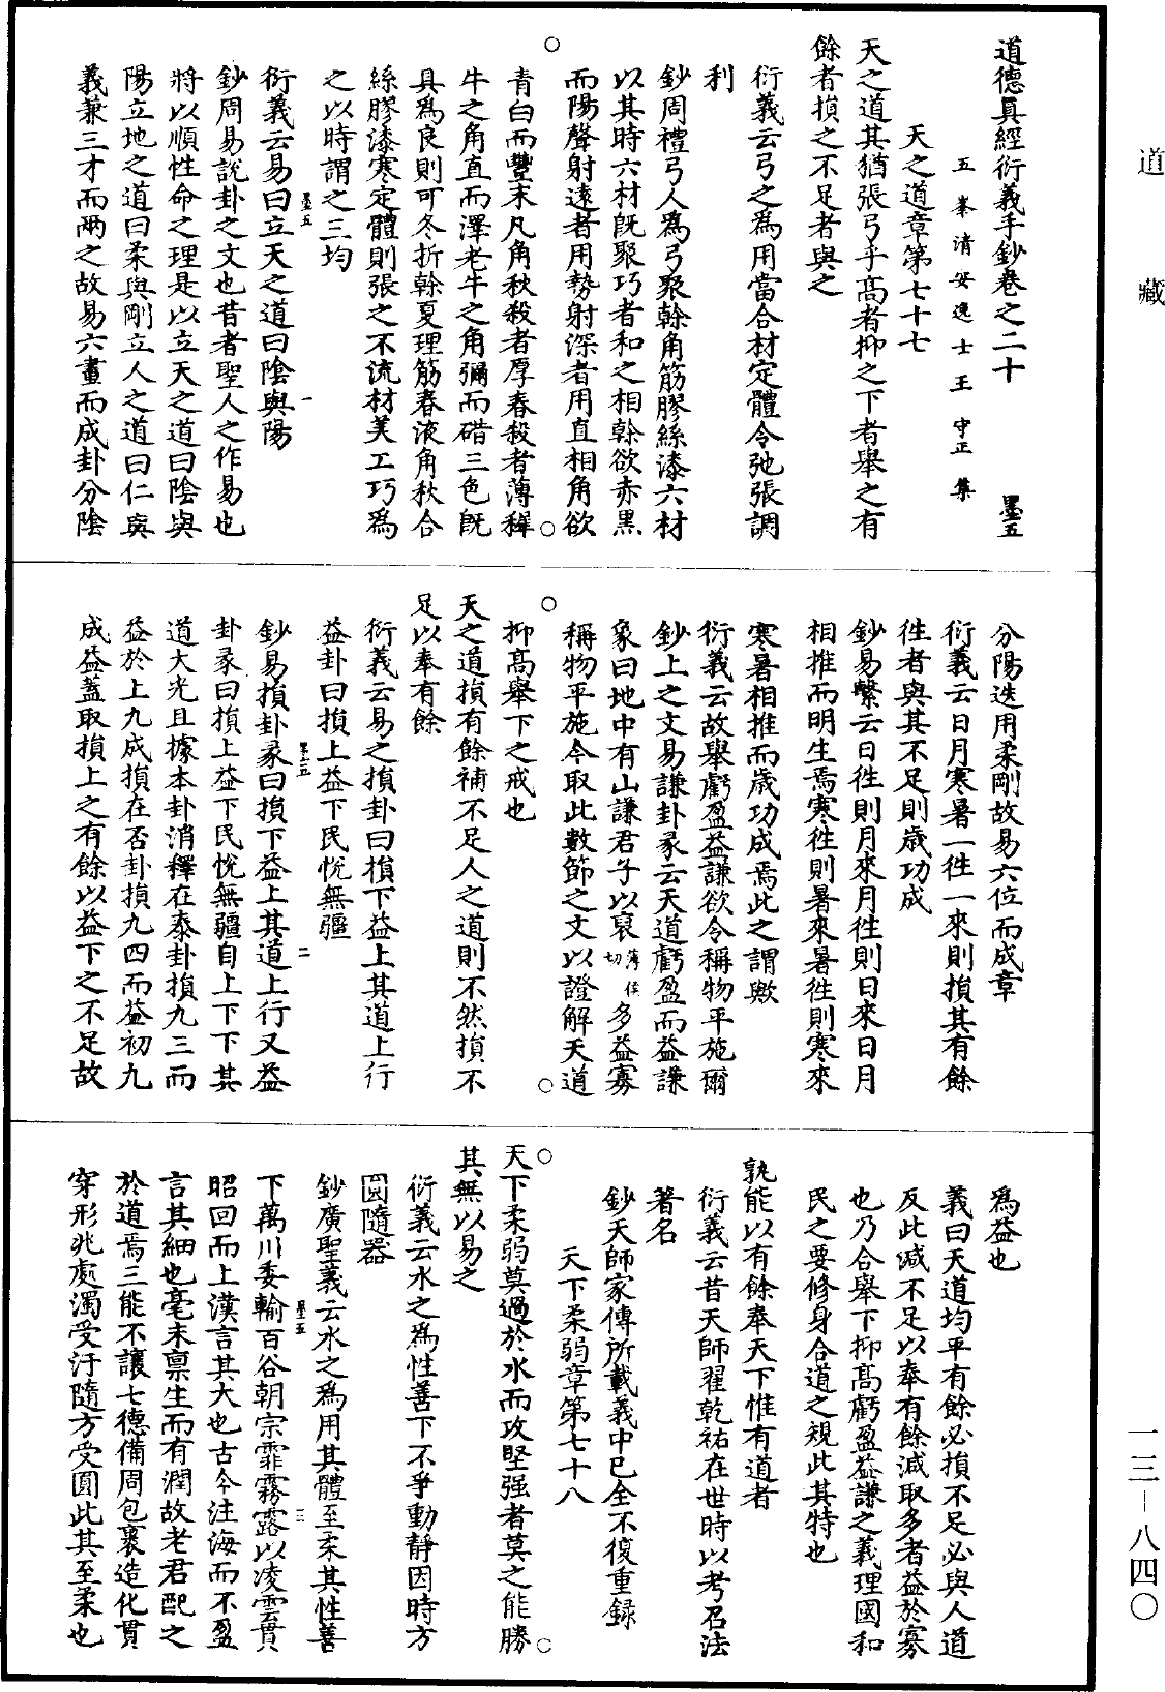 道藏
道德真經衍義手鈔卷之二十 墨五
五峯清安逸士王守正集
天之道章第七十七
天之道其猶張弓乎高者抑之下者舉之有
餘者損之不足者與之
衍義云弓之為用當合材定體令弛張調
利
鈔周禮弓人為弓聚榦角筋膠絲漆六材
以其時六材旣聚巧者和之相榦欲赤黑
而陽聲射遠者用勢射深者用直相角欲
青白而豐末凡角秋殺者厚春殺者薄穉
牛之角直而澤老牛之角彌而䃰三色旣
具為良則可冬折榦夏理筋春液角秋合
絲膠漆寒定體則張之不流材美工巧為
之以時謂之三均
墨五 一
衍義云易曰立天之道曰陰與陽
鈔周易說卦之文也昔者聖人之作易也
將以順性命之理是以立天之道曰陰與
陽立地之道曰柔與剛立人之道曰仁與
義兼三才而兩之故易六畫而成卦分陰
分陽迭用柔剛故易六位而成章
衍義云日月寒暑一徃一來則損其有餘
徃者與其不足則歲功成
鈔易繫云日徃則月來月徃則日來日月
相推而明生焉寒徃則暑來暑徃則寒來
寒暑相推而歲功成焉此之謂歟
衍義云故舉虧盈益謙欲令稱物平施爾
鈔上之文易謙卦彖云天道虧盈而益謙
象曰地中有山謙君子以裒薄侯切多益寡
稱物平施今取此數節之文以證解天道
抑高舉下之戒也
天之道損有餘補不足人之道則不然損不
足以奉有餘
衍義云易之損卦曰損下益上其道上行
益卦曰損上益下民悅無疆
墨五 二
鈔易損卦彖曰損下益上其道上行又益
卦彖曰損上益下民悅無疆自上下下其
道大光且據本卦消釋在泰卦損九三而
益於上九成損在否卦損九四而益初九
成益蓋取損上之有餘以益下之不足故
為益也
義曰天道均平有餘必損不足必與人道
反此減不足以奉有餘減取多者益於寡
也乃合舉下抑高虧盈益謙之義理國和
民之要修身合道之規此其特也
孰能以有餘奉天下惟有道者
衍義云昔天師翟乾祐在世時以考召法
著名
鈔天師家傳所載義中已全不復重録
天下柔弱章第七十八
天下柔弱莫過於水而攻堅强者莫之能勝
其無以易之
衍義云水之為性善下不爭動靜因時方
圓隨器
鈔廣聖義云水之為用其體至柔其性善
墨五 三
下萬川委輸百谷朝宗霏霧露以凌雲貫
昭回而上漢言其大也古今注海而不盈
言其細也毫末禀生而有潤故老君配之
於道焉三能不讓七德備周包裹造化貫
穿形兆處濁受汙隨方受圓此其至柔也
一三—八四〇